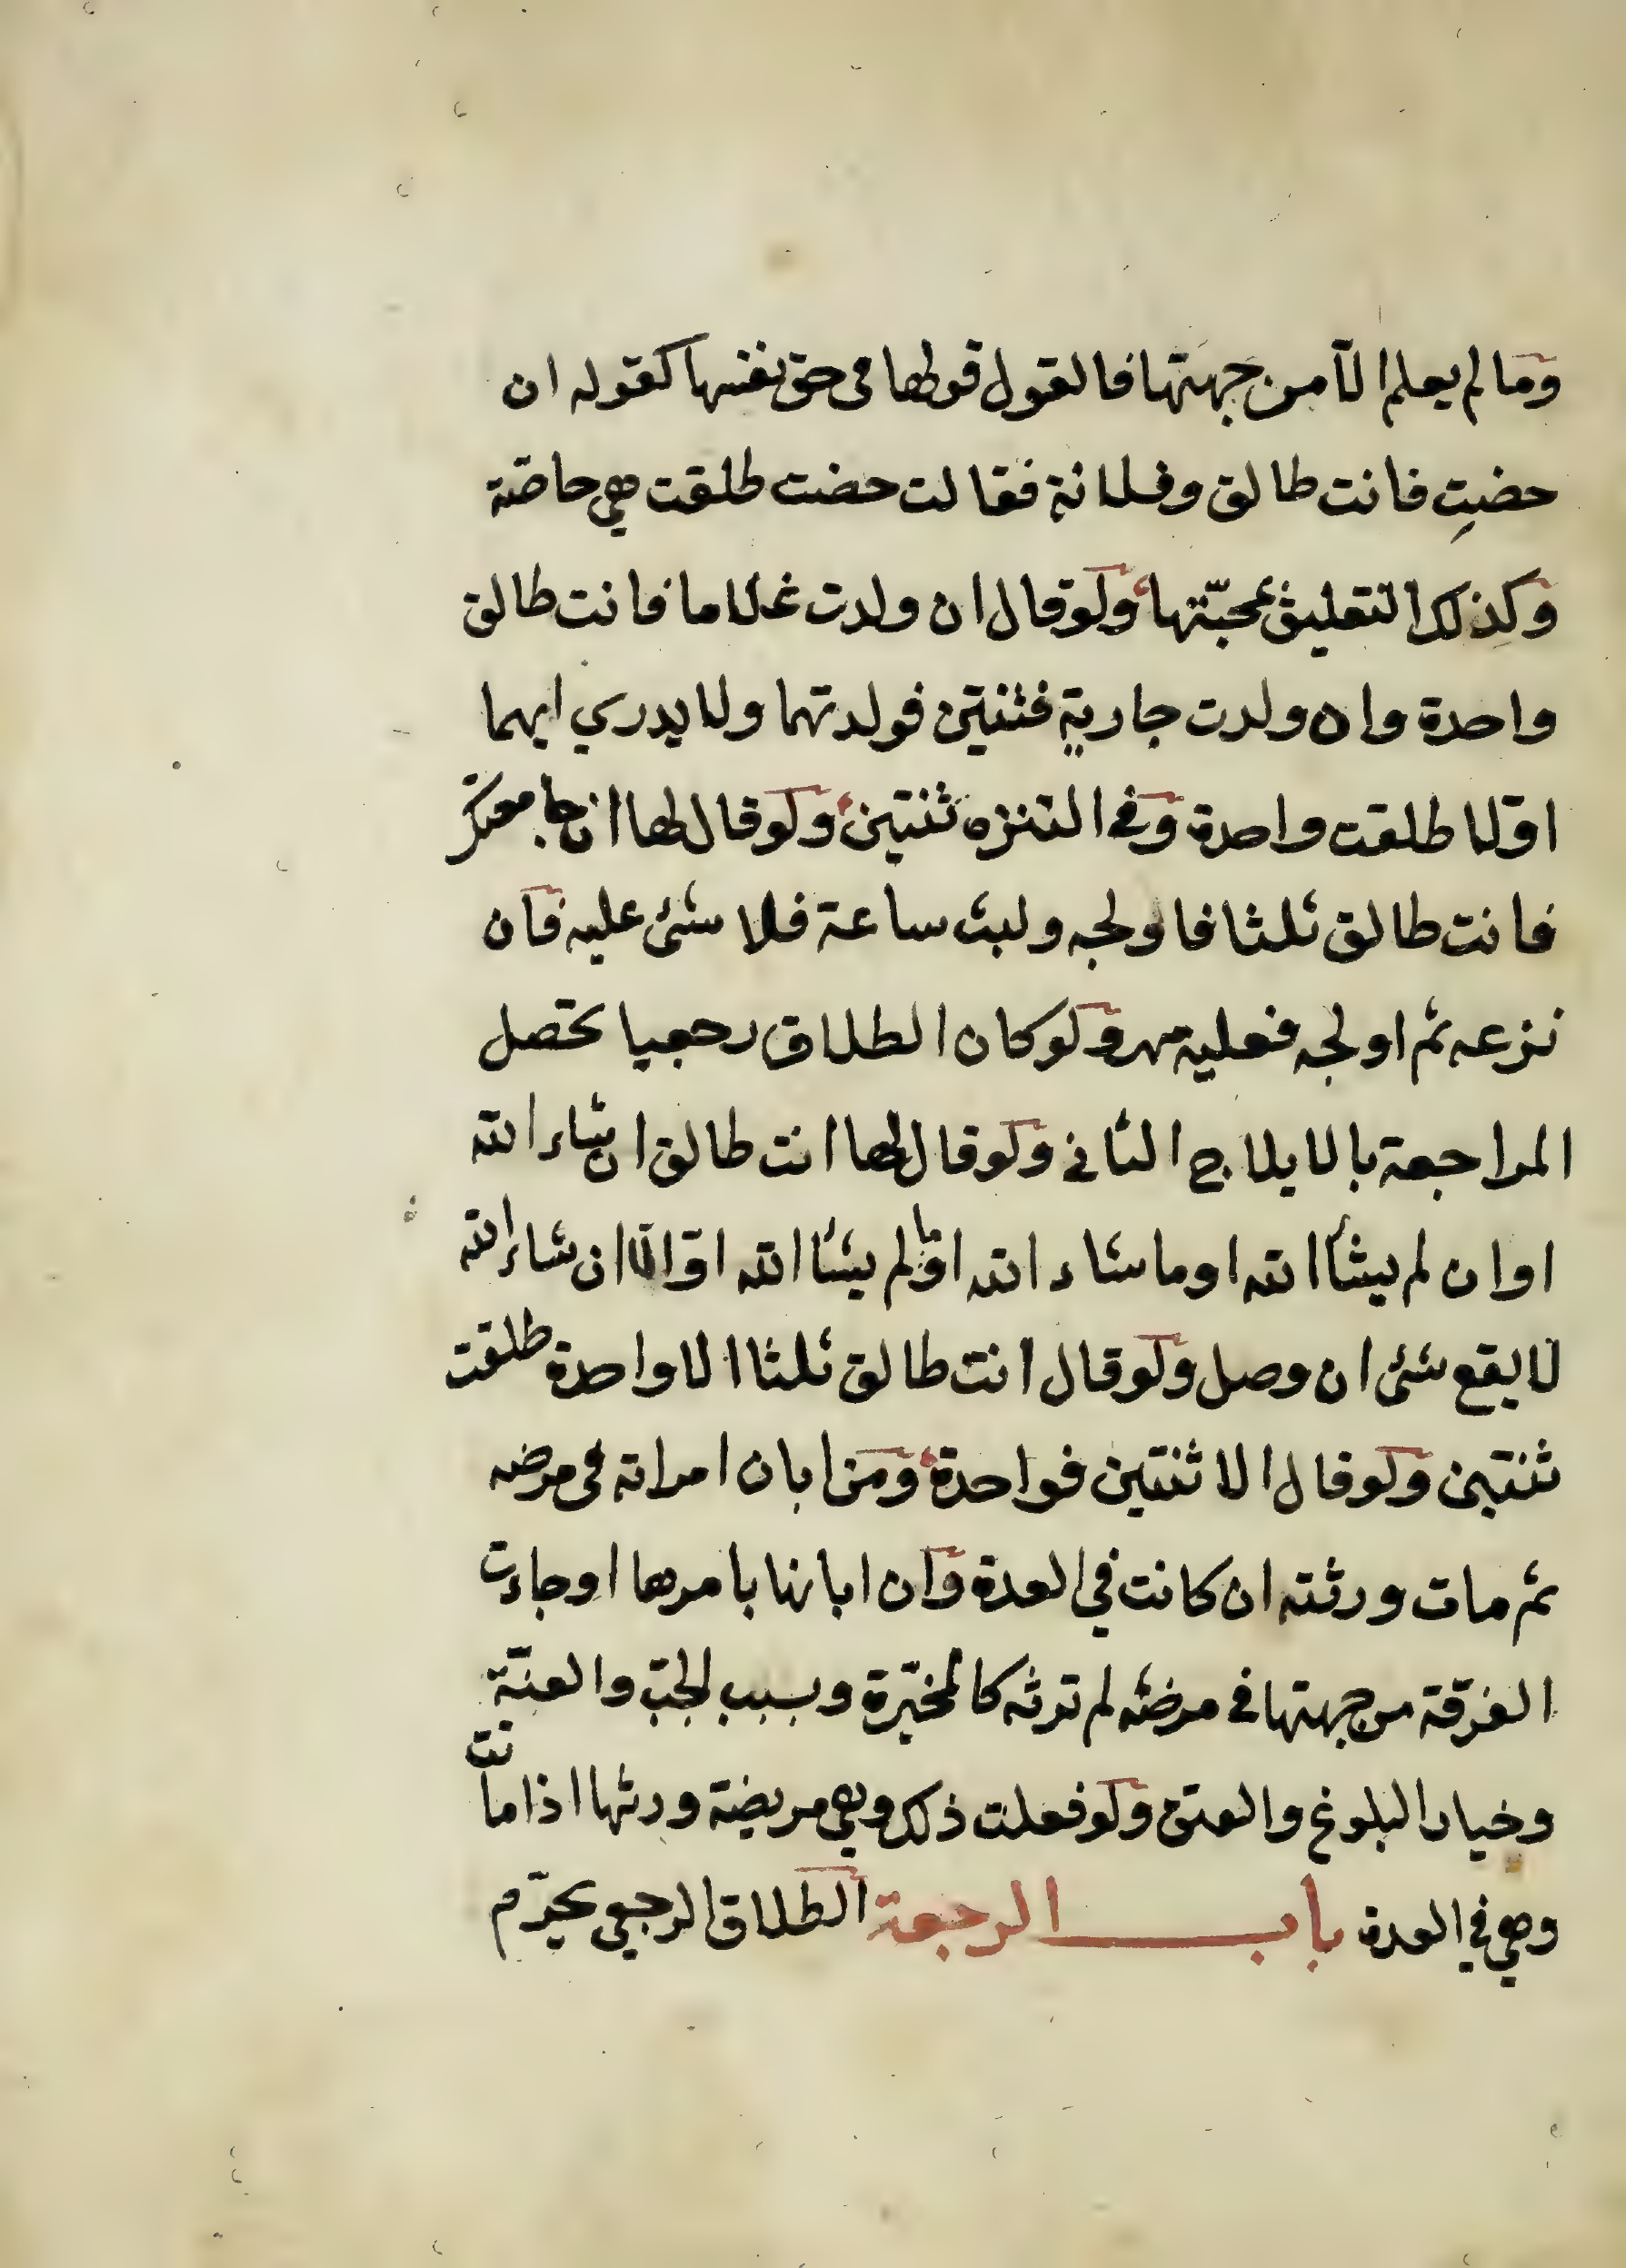 وما لم يعلم الّا من جهتها فالقول قولها في حق نفسها كقوله ان
حضتِ فانت طالق وفلانة فقالت حضت طلقت هي خاصّة
وكذلك التعليق بمحبّتها ولو قال ان ولدت غلاما فانت طالق
واحدة وان ولدت جارية فثنتين فولدتهما ولا يدري ايهما
اوّلا طلقت واحدة وفي التنزه ثنتين ولو قال لها ان جامعتك
فانت طالق ثلثا فاولجه ولبث ساعة فلا شئ عليه فان
نزعه ثم اولجه فعليه مهر ولو كان الطلاق رجعيا تحصل
المراجعة بالايلاج الثاني ولو قال لها انت طالق ان شاء الله
او ان لم يشأ الله او ما شاء الله او ما لم يشأ الله او الّا ان شاء الله
لا يقع شئ ان وصل ولو قال انت طالق ثلثا الا واحدة طلقت
ثنتين ولو قال الا ثنتين فواحدة ومن ابان امراته في مرضه
ثم مات ورثته ان كانت في العدة وان ابانها بامرها او جاءت
الفرقة من جهتها في مرضه لم ترثه كالمخيّرة وبسبب الجبّ والعنّة
وخيار البلوغ والعتق ولو فعلت ذلك وهي مريضة ورثها اذا ماتت
وهي في العدة باب الرجعة الطلاق الرجعي لا يحرّم